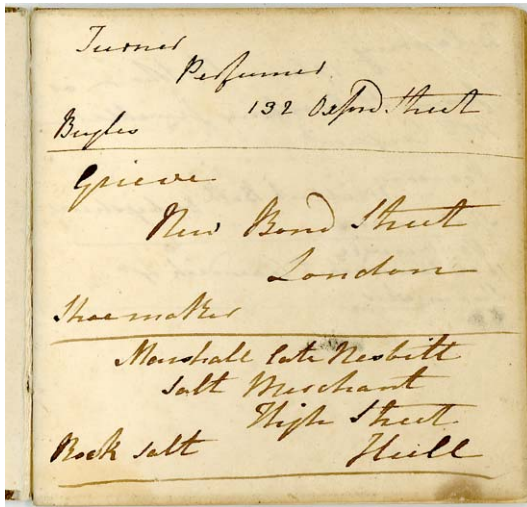 Turner
Perfumer
132 Oxford Street
Bugles
Grieve
New Bond Street
London
Shoemaker
Marshall late Nesbitt
Salt Merchant
High Street
Rock Salt Hull